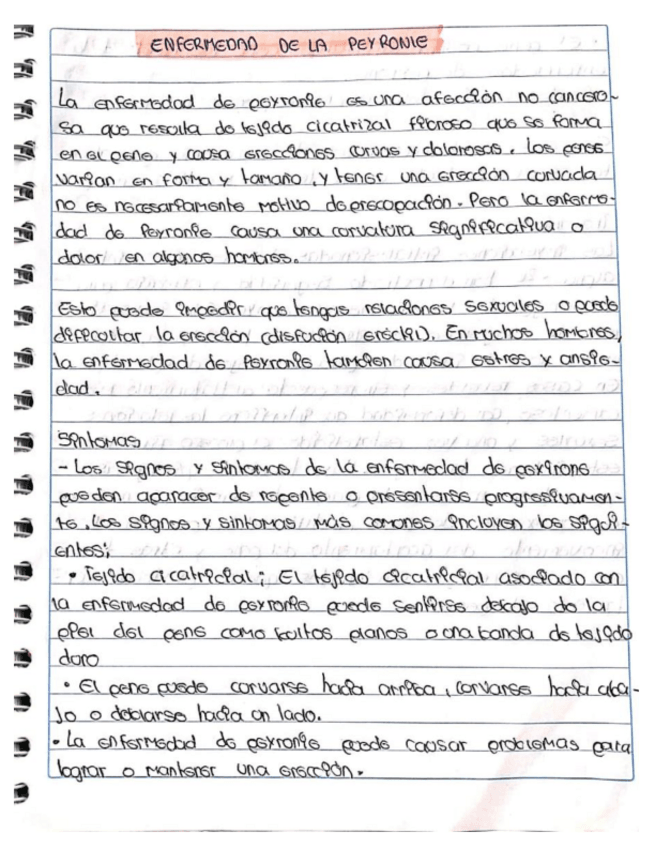 ENFERMEDAD DE LA PEYRONIE
La enfermedad de peyronie es una afección no cancero-
sa que resulta de tejido cicatrizal fibroso que se forma
en el pene y causa erecciones curvas y dolorosas. Los penes
varian en forma y tamaño, y tener una erección curvada
no es necesariamente motivo de precupación. Pero la enferme-
dad de Peyronie causa una curvatura significativa o
dolor en algunos hombres.
Esto puede impedir que tengas relaciones sexuales o puede
dificultar la erección (disfución eréctil). En muchos hombres,
la enfermedad de Peyronie tambien causa estres y ansie-
dad.
Sintomas
- Los signos y sintomas de la enfermedad de peyirone
pueden aparacer de repente o presentarse progresivamen-
te. Los signos y sintomas más comunes incluyen los sigui-
entes;
• Tejido cicatricial; El tejido cicatricial asociado con
la enfermedad de peyronie puede sentirse debajo de la
piel del pene como bultos planos o una banda de tejido
duro
• El pene puede curvarse hacia arriba, curvarse hacia aba-
jo o doblarse hacia un lado.
• La enfermedad de peyronie puede causar problemas para
lograr o mantener una erección.